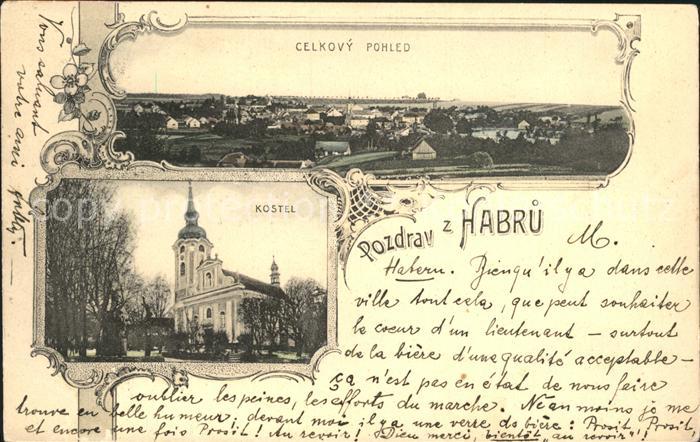 CELKOVÝ POHLED
KOSTEL
Pozdrav z HABRŮ
M.
Habern. Bienqu'il y a dans celle
ville tout cela, que peut souhaiter
le coeur d'un lieutenant – surtout
de la bière d'une qualité acceptable –
ça n'est pas en état de nous faire
oublier les peines, les efforts du marche. Néanmoins je me
trouve en belle humeur; devant moi il y a une verre de bière: Prosit, Prosit
et encore une fois Prosit! Au revoir! Dieu merci, bientôt "au revoir"!
Vous saluant
votre ami